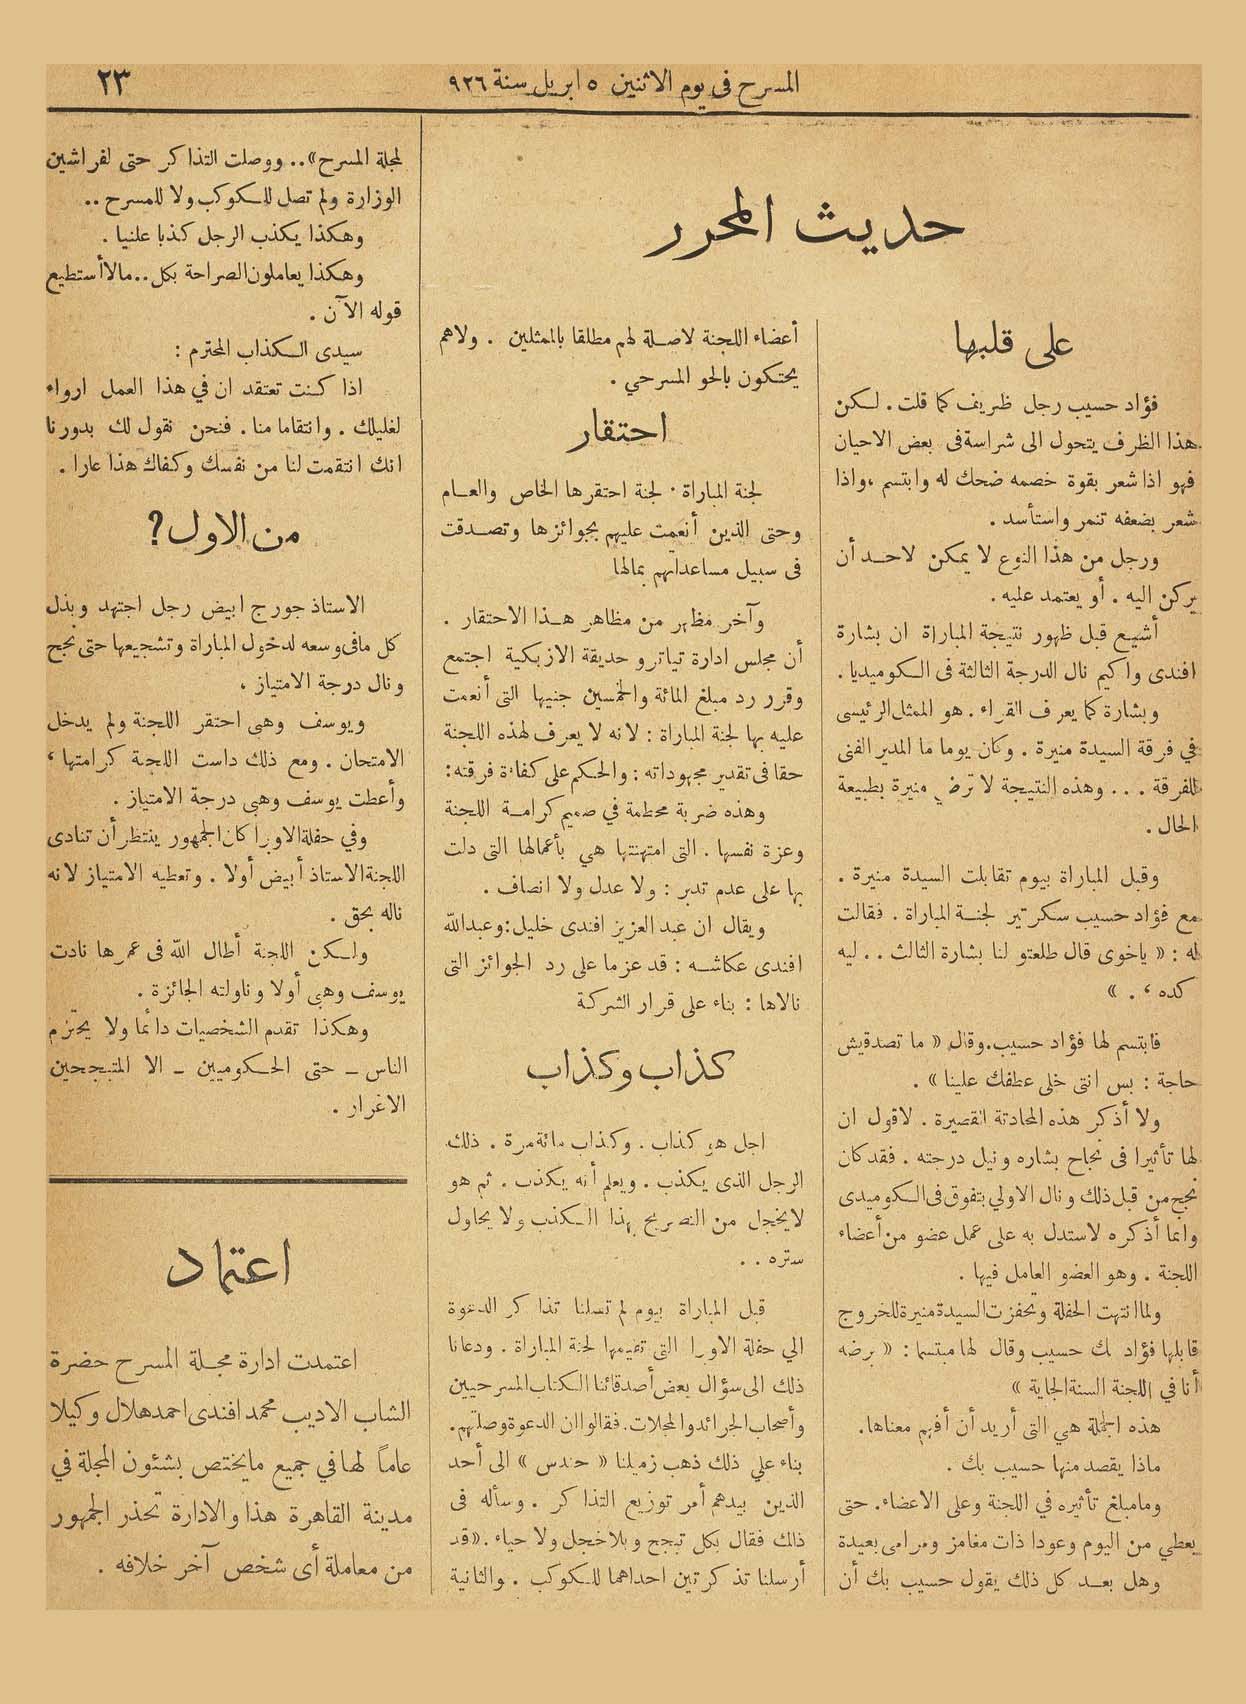 المسرح في يوم الاثنين ٥ ابريل سنة ٩٢٦
٢٣
حديث المحرر
على قلبها
فؤاد حسيب رجل ظريف كما قلت . لكن
هذا الظرف يتحول الى شراسة فى بعض الاحيان
فهو اذا شعر بقوة خصمه ضحك له وابتسم ، واذا
شعر بضعفه تنمر واستأسد .
ورجل من هذا النوع لا يمكن لاحد أن
يركن اليه . أو يعتمد عليه .
أشيع قبل ظهور نتيجة المباراة ان بشارة
افندى واكيم نال الدرجة الثالثة فى الكوميديا .
وبشارة كما يعرف القراء . هو الممثل الرئيسى
في فرقة السيدة منيرة . وكان يوما ما المدير الفنى
للفرقة . . . وهذه النتيجة لا ترضي منيرة بطبيعة
الحال .
وقبل المباراة بيوم تقابلت السيدة منيرة .
مع فؤاد حسيب سكرتير لجنة المباراة . فقالت
له : « ياخوى قال طلعتو لنا بشارة الثالث . . ليه
كده ، . »
فابتسم لها فؤاد حسيب . وقال « ما تصدقيش
حاجة : بس انتى خلى عطفك علينا » .
ولا أذكر هذه المحادثة القصيرة . لاقول ان
لها تأثيرا فى نجاح بشاره ونيل درجته . فقد كان
نجح من قبل ذلك ونال الاولي بتفوق فى الكوميدى
وانما أذكره لاستدل به على عمل عضو من أعضاء
اللجنة . وهو العضو العامل فيها .
ولما انتهت الحفلة وتحفزت السيدة منيرة للخروج
قابلها فؤاد بك حسيب وقال لها مبتسما : « برضه
أنا في اللجنة السنة الجاية »
هذه الجملة هي التى أريد أن أفهم معناها .
ماذا يقصد منها حسيب بك .
ومامبلغ تأثيره في اللجنة وعلى الاعضاء . حتى
يعطي من اليوم وعودا ذات مغامز ومرامى بعيدة
وهل بعد كل ذلك يقول حسيب بك أن
أعضاء اللجنة لاصلة لهم مطلقا بالممثلين . ولاهم
يحتكون بالحو المسرحي .
احتقار
لجنة المباراة . لجنة احتقرها الخاص والعام
وحتى الذين أنعمت عليهم بجوائزها وتصدقت
فى سبيل مساعداتهم بمالها
وآخر مظهر من مظاهر هذا الاحتقار .
أن مجلس ادارة تياترو حديقة الازبكية اجتمع
وقرر رد مبلغ المائة والخمسين جنيها التى أنعمت
عليه بها لجنة المباراة : لانه لا يعرف لهذه اللجنة
حقا فى تقدير مجهوداته : والحكم على كفاءة فرقته :
وهذه ضربة محطمة في صميم كرامة اللجنة
وعزة نفسها . التى امتهنتها هي بأعمالها التى دلت
بها على عدم تدبر : ولا عدل ولا انصاف .
ويقال ان عبد العزيز افندى خليل : وعبد الله
افندى عكاشه : قد عزما على رد الجوائز التى
نالاها : بناء على قرار الشركة
كذاب وكذاب
اجل هو كذاب . وكذاب مائة مرة . ذلك
الرجل الذى يكذب . ويعلم أنه يكذب . ثم هو
لايخجل من التصريح بهذا الكذب ولا يحاول
ستره . .
قبل المباراة بيوم لم تصلنا تذاكر الدعوة
الي حفلة الاوبرا التى تقيمها لجنة المباراة . ودعانا
ذلك الى سؤال بعض أصدقائنا الكتاب المسرحيين
وأصحاب الجرائد والمجلات . فقالوا ان الدعوة وصلتهم .
بناء علي ذلك ذهب زميلنا « حندس » الى أحد
الذين بيدهم أمر توزيع التذاكر . وسأله فى
ذلك فقال بكل تبجح وبلا خجل ولا حياء . « قد
أرسلنا تذكرتين احداهما للكوكب . والثانية
لمجلة المسرح » .. ووصلت التذاكر حتى لفراشين
الوزارة ولم تصل للكوكب ولا للمسرح ..
وهكذا يكذب الرجل كذبا علنيا .
وهكذا يعاملون الصراحة بكل .. مالا أستطيع
قوله الآن .
سيدى الكذاب المحترم :
اذا كنت تعتقد ان في هذا العمل ارواء
لغليلك . وانتقاما منا . فنحن نقول لك بدورنا
انك انتقمت لنا من نفسك وكفاك هذا عارا .
من الاول ؟
الاستاذ جورج ابيض رجل اجتهد وبذل
كل مافى وسعه لدخول المباراة وتشجيعها حتى نجح
ونال درجة الامتياز .
ويوسف وهبى احتقر اللجنة ولم يدخل
الامتحان . ومع ذلك داست اللجنة كرامتها ،
وأعطت يوسف وهبى درجة الامتياز .
وفي حفلة الاوبرا كان الجمهور ينتظر أن تنادى
اللجنة الاستاذ أبيض أولا . وتعطيه الامتياز لانه
ناله بحق .
ولكن اللجنة أطال الله فى عمرها نادت
يوسف وهبى أولا وناولته الجائزة .
وهكذا تقدم الشخصيات دائما ولا يحترم
الناس ــ حتى الحكوميين ــ الا المتبجحين
الاغرار .
اعتماد
اعتمدت ادارة مجلة المسرح حضرة
الشاب الاديب محمد افندى احمد هلال وكيلا
عاماً لها في جميع مايختص بشئون المجلة في
مدينة القاهرة هذا والادارة تحذر الجمهور
من معاملة أى شخص آخر خلافه .